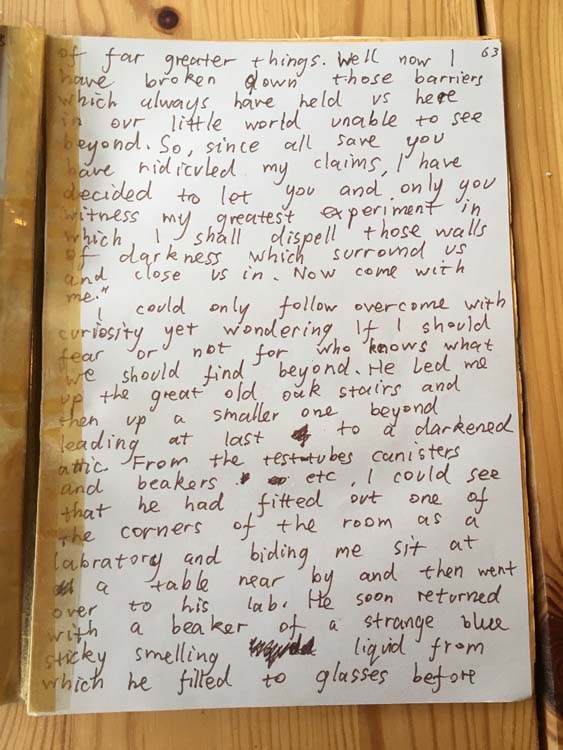 63
of far greater things. Well now I
have broken down those barriers
which always have held us here
in our little world unable to see
beyond. So, since all save you
have ridiculed my claims, I have
decided to let you and only you
witness my greatest experiment in
which I shall dispell those walls
of darkness which surround us
and close us in. Now come with
me."
I could only follow overcome with
curiosity yet wondering If I should
fear or not for who knows what
we should find beyond. He led me
up the great old oak stairs and
then up a smaller one beyond
leading at last to a darkened
attic. From the test-tubes canisters
and beakers etc, I could see
that he had fitted out one of
the corners of the room as a
labratory and biding me sit at
a table near by and then went
over to his lab. He soon returned
with a beaker of a strange blue
sticky smelling liquid from
which he filled to glasses before